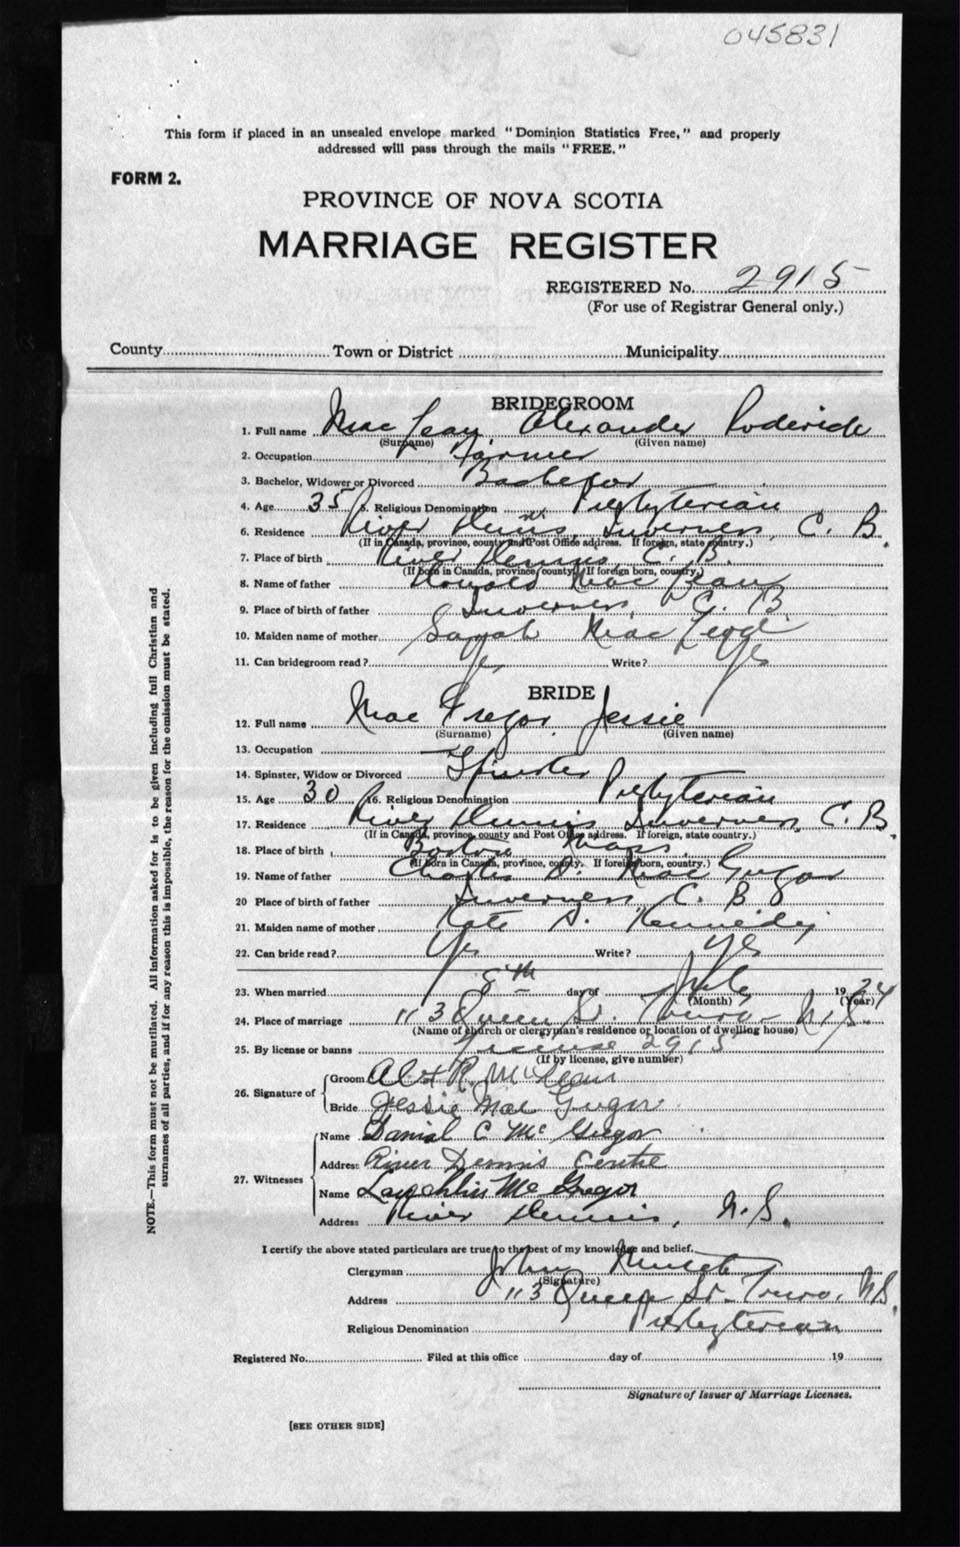 045831
This form if placed in an unsealed envelope marked "Dominion Statistics Free," and properly
addressed will pass through the mails "FREE."
FORM 2.
PROVINCE OF NOVA SCOTIA
MARRIAGE REGISTER
REGISTERED No. 2915
(For use of Registrar General only.)
County Town or District Municipality
BRIDEGROOM
1. Full name Mac Lean Alexander Roderick
(Surname) (Given name)
2. Occupation Farmer
3. Bachelor, Widower or Divorced Bachelor
4. Age 35 5. Religious Denomination Presbyterian
6. Residence River Dennis Inverness, C. B.
(If in Canada, province, county and Post Office address. If foreign, state country.)
7. Place of birth River Dennis, C. B.
(If born in Canada, province, county. If foreign born, country.)
8. Name of father Mac Lean
9. Place of birth of father Inverness, C. B
10. Maiden name of mother Sarah Mac Leod
11. Can bridegroom read? Yes Write? Yes
BRIDE
12. Full name Mac Gregor, Jessie
(Surname) (Given name)
13. Occupation
14. Spinster, Widow or Divorced Spinster
15. Age 30 16. Religious Denomination Presbyterian
17. Residence River Dennis Inverness, C. B.
(If in Canada, province, county and Post Office address. If foreign, state country.)
18. Place of birth Boston Mass.
(If born in Canada, province, county. If foreign born, country.)
19. Name of father Charles D. Mac Gregor
20 Place of birth of father Inverness, C. B
21. Maiden name of mother Kate S. Kennedy
22. Can bride read? Yes Write? Yes
23. When married 8th day of 1924
(Month) (Year)
24. Place of marriage 113 Queen St. Truro N.S.
(Name of church or clergyman's residence or location of dwelling house)
25. By license or banns License 2915
(If by license, give number)
26. Signature of Groom Alex R. McLean
Bride Jessie Mac Gregor
27. Witnesses Name Danial C Mc Gregor
Address River Dennis Centre
Name Lauchlin Mc Gregor
Address River Dennis, N.S.
I certify the above stated particulars are true to the best of my knowledge and belief.
Clergyman John
(Signature)
Address 113 Queen St. Truro, N.S.
Religious Denomination Presbyterian
Registered No. Filed at this office day of 19
Signature of Issuer of Marriage Licenses.
[SEE OTHER SIDE]
NOTE.—This form must not be mutilated. All information asked for is to be given including full Christian and
surnames of all parties, and if for any reason this is impossible, the reason for the omission must be stated.